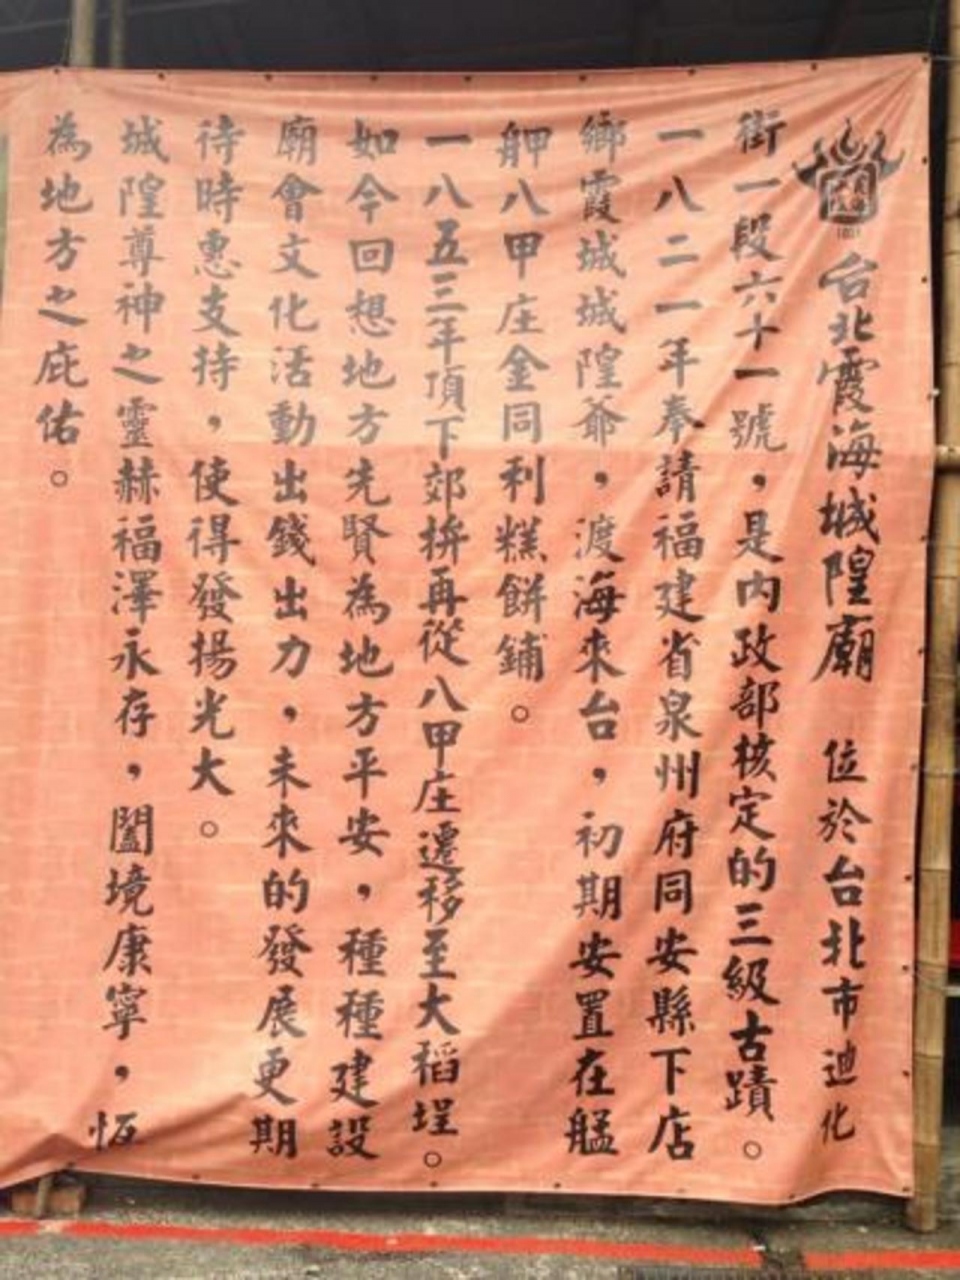 台北霞海城隍廟 位於台北市迪化
街一段六十一號，是內政部核定的三級古蹟。
一八二一年奉請福建省泉州府同安縣下店
鄉霞城城隍爺，渡海來台，初期安置在艋
舺八甲庄金同利糕餅鋪。
一八五三年頂下郊拚再從八甲庄遷移至大稻埕。
如今回想地方先賢為地方平安，種種建設
廟會文化活動出錢出力，未來的發展更期
待時惠支持，使得發揚光大。
城隍尊神之靈赫福澤永存，闔境康寧，恆
為地方之庇佑。